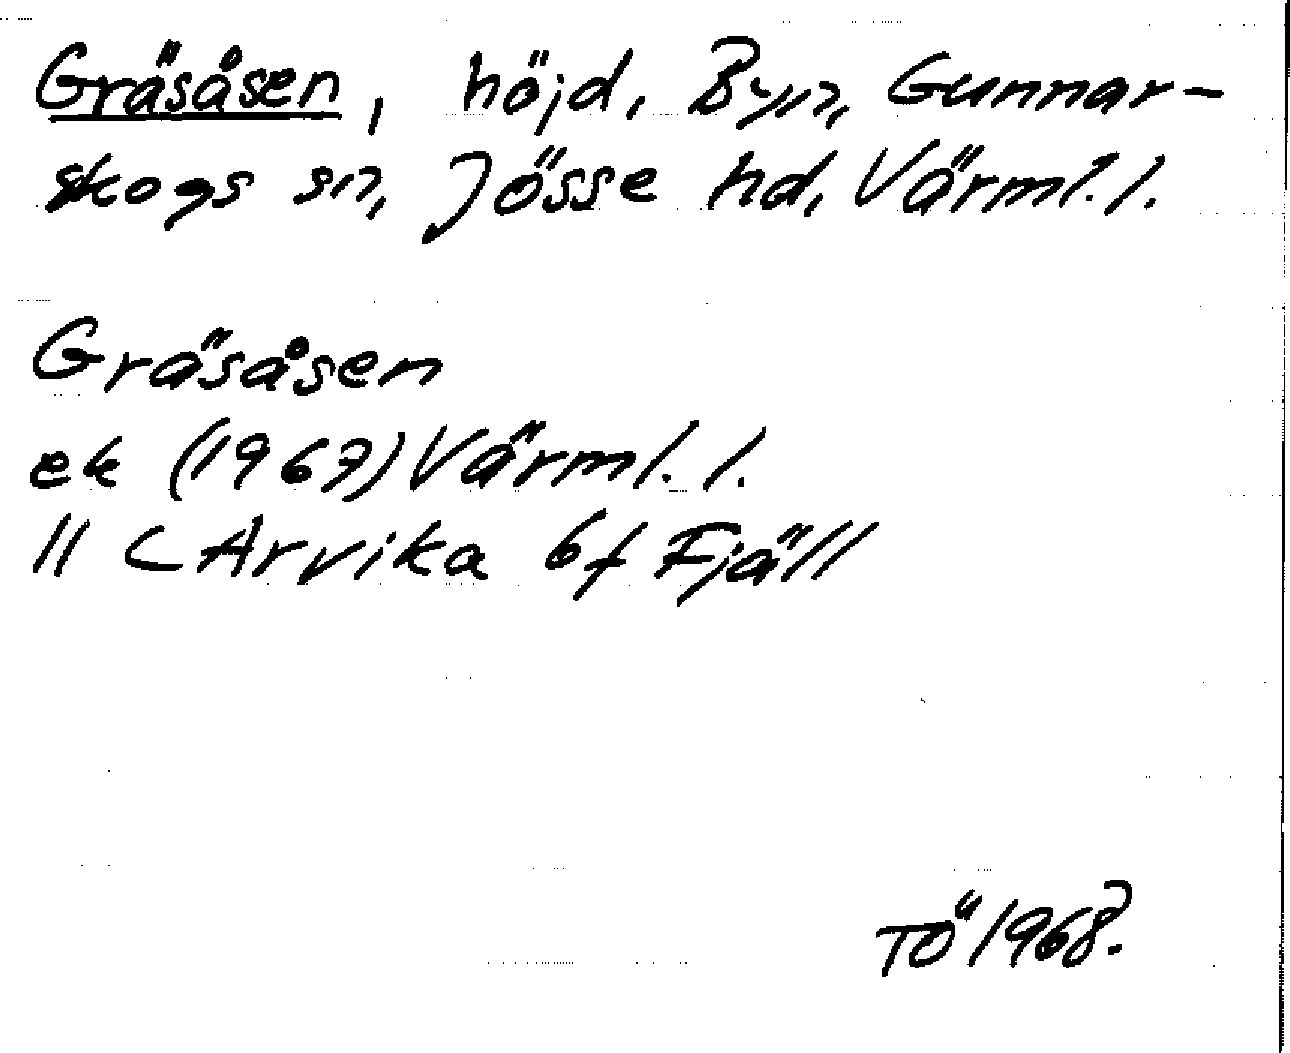 Gräsåsen, höjd, Byn, Gunnar-
skogs sn, Jösse hd, Värml. l.
Gräsåsen
ek (1967) Värml. l.
11 C Arvika 6f Fjäll
TÖ 1968.